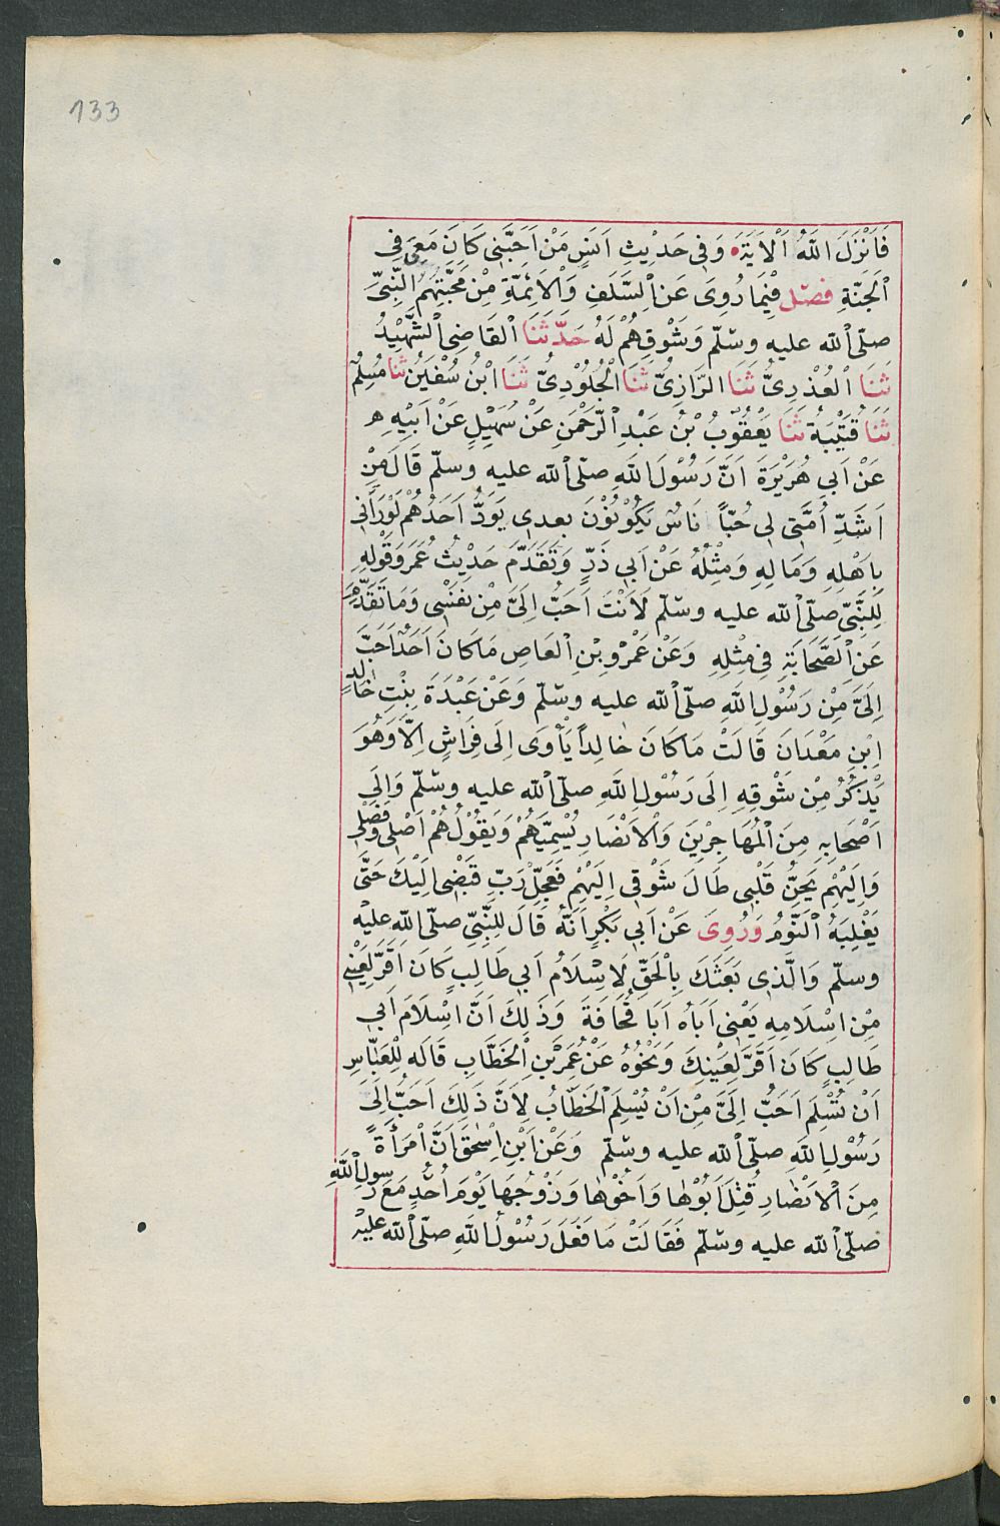 133
فَاَنْزَلَ اللّٰهُ اْلاَيَةَ • وَفِي حَدِيْثِ اَنَسٍ مَنْ اَحَبَّنِي كَانَ مَعِيَ فِي
اْلجَنَّةِ فصّل فِيْمَا رُوِيَ عَنِ السَّلَفِ وَاْلاَئِمَّةِ مِنْ مَحَبَّتِهِمُ النَّبِيَّ
صلّى الله عليه وسلّم وَشَوْقِهُمْ لَهُ حَدَّثَنَا اْلقَاضِى الشَّهِيْدُ
ثَنَا اْلعُذْرِىُّ ثَنَا الرَّازِىُّ ثَنَا الْجُلُوْدِىُّ ثَنَا ابْنُ سُفْيٰنُ ثَنَا مُسْلِمٌ
ثَنَا قُتَيْبَةُ ثَنَا يَعْقُوْبُ بْنُ عَبْدِ الرَّحْمٰنِ عَنْ سُهَيْلٍ عَنْ اَبِيْهِ
عَنْ اَبِي هُرَيْرَةَ اَنَّ رَسُوْلَ اللّٰهِ صلّى الله عليه وسلّم قَالَ مِنْ
اَشَدِّ اُمَّتِى لِى حُبّاً نَاسٌ يَكُوْنُوْنَ بعدى يَوَدُّ اَحَدُهُمْ لَوْرَاٰنِى
بِاَهْلِهِ وَمَالِهِ وَمِثْلُهُ عَنْ اَبِي ذَرٍّ وَتَقَدَّمَ حَدِيْثُ عُمَرَ وَقَوْلِهِ
لِلنَّبِيِّ صلّى الله عليه وسلّم لَاَنْتَ اَحَبُّ اِلَىَّ مِنْ نَفْسِى وَمَا تَقَدَّمَ
عَنِ الصَّحَابَةِ فِي مِثْلِهِ وَعَنْ عَمْرِو بْنِ اْلعَاصِ مَاكَانَ اَحَدٌ اَحَبَّ
اِلَىَّ مِنْ رَسُوْلِ اللّٰهِ صلّى الله عليه وسلّم وَعَنْ عَبْدَةَ بِنْتِ خَالِدِ
ابْنِ مَعْدَانَ قَالَتْ مَاكَانَ خَالِداً يَأْوَى اِلَى فِرَاشٍ اِلَّا وَهُوَ
يَذْكُرُ مِنْ شَوْقِهِ اِلَى رَسُوْلِ اللّٰهِ صلّى الله عليه وسلّم وَاِلَى
اَصْحَابِهِ مِنَ اْلمُهَاجِرِيْنَ وَاْلاَنْصَارِ يُسَمِّيْهُمْ وَيَقُوْلُ هُمْ اَصْلِى وَفَصْلِى
وَاِلَيْهِمْ يَحِنُّ قَلْبِى طَالَ شَوْقِى اِلَيْهِمْ فَعَجِّلْ رَبِّ قَبْضِى اِلَيْكَ حَتَّى
يَغْلِبَهُ النَّوْمُ وَرُوِىَ عَنْ اَبِي بَكْرٍ اَنَّهُ قَالَ لِلنَّبِيِّ صلّى الله عليه
وسلّم وَالَّذِى بَعَثَكَ بِالْحَقِّ لَاِسْلَامُ اَبِي طَالِبٍ كَانَ اَقَرَّ لِعَيْنِى
مِنْ اِسْلَامِهِ يَعْنِى اَبَاهُ اَبَا قُحَافَةَ وَذَلِكَ اَنَّ اِسْلَامَ اَبِي
طَالِبٍ كَانَ اَقَرَّ لِعَيْنِكَ وَنَحْوُهُ عَنْ عُمَرَ بْنِ الْخَطَّابِ قَالَه لِلْعَبَّاسِ
اَنْ تُسْلِمَ اَحَبُّ اِلَىَّ مِنْ اَنْ يُسْلِمَ الْخَطَّابُ لِاَنَّ ذَلِكَ اَحَبُّ اِلَى
رَسُوْلِ اللّٰهِ صلّى الله عليه وسلّم وَعَنْ اَبْنِ اِسْحٰقَ اَنَّ امْرَأَةً
مِنَ اْلاَنْصَارِ قُتِلَ اَبُوْهَا وَاَخُوْهَا وَزَوْجُهَا يَوْمَ اُحُدٍ مَعَ رَسولِ اللّٰهِ
صلّى الله عليه وسلّم فَقَالَتْ مَا فَعَلَ رَسُوْلُ اللّٰهِ صلّى الله عليْه